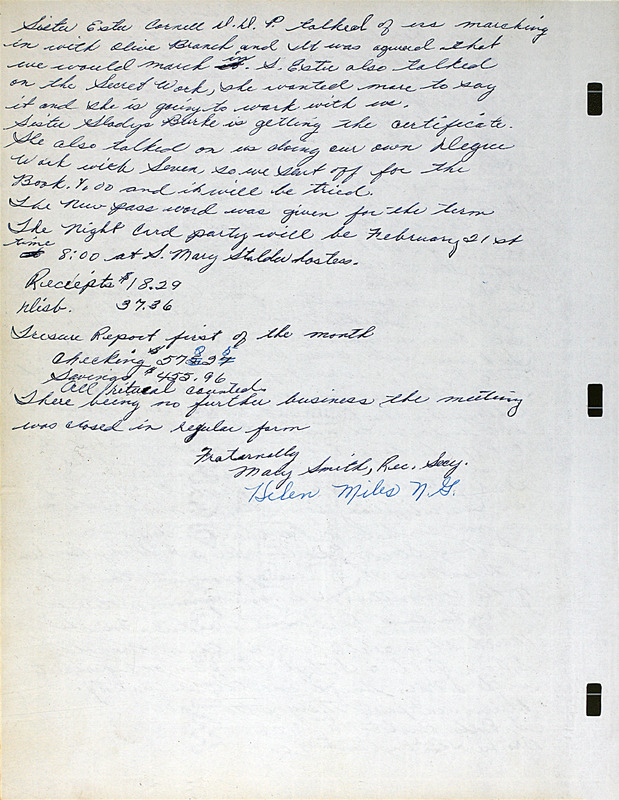 Sister Ester Cornell D.D.P. talked of us marching
in with Olive Branch and it was agreed that
we would march in. S. Ester also talked
on the Secret Work, she wanted more to say
it and she is going to work with us.
Sister Gladys Burke is getting the certificate.
She also talked on us doing our own Degree
Work with Seven so we sent off for the
Book. 4.00 and it will be tried.
The New pass word was given for the term
The Night Card party will be February 21st
time 8:00 at S. Mary Stalder hostess.
Receipts $18.29
Disb. 37.36
Tresure Report first of the month
Checking $57
Savings $455.96
All ritual counted
There being no further business the meeting
was closed in regular form
Fraternally
Mary Smith, Rec. Secy.
Helen Miles N.G.